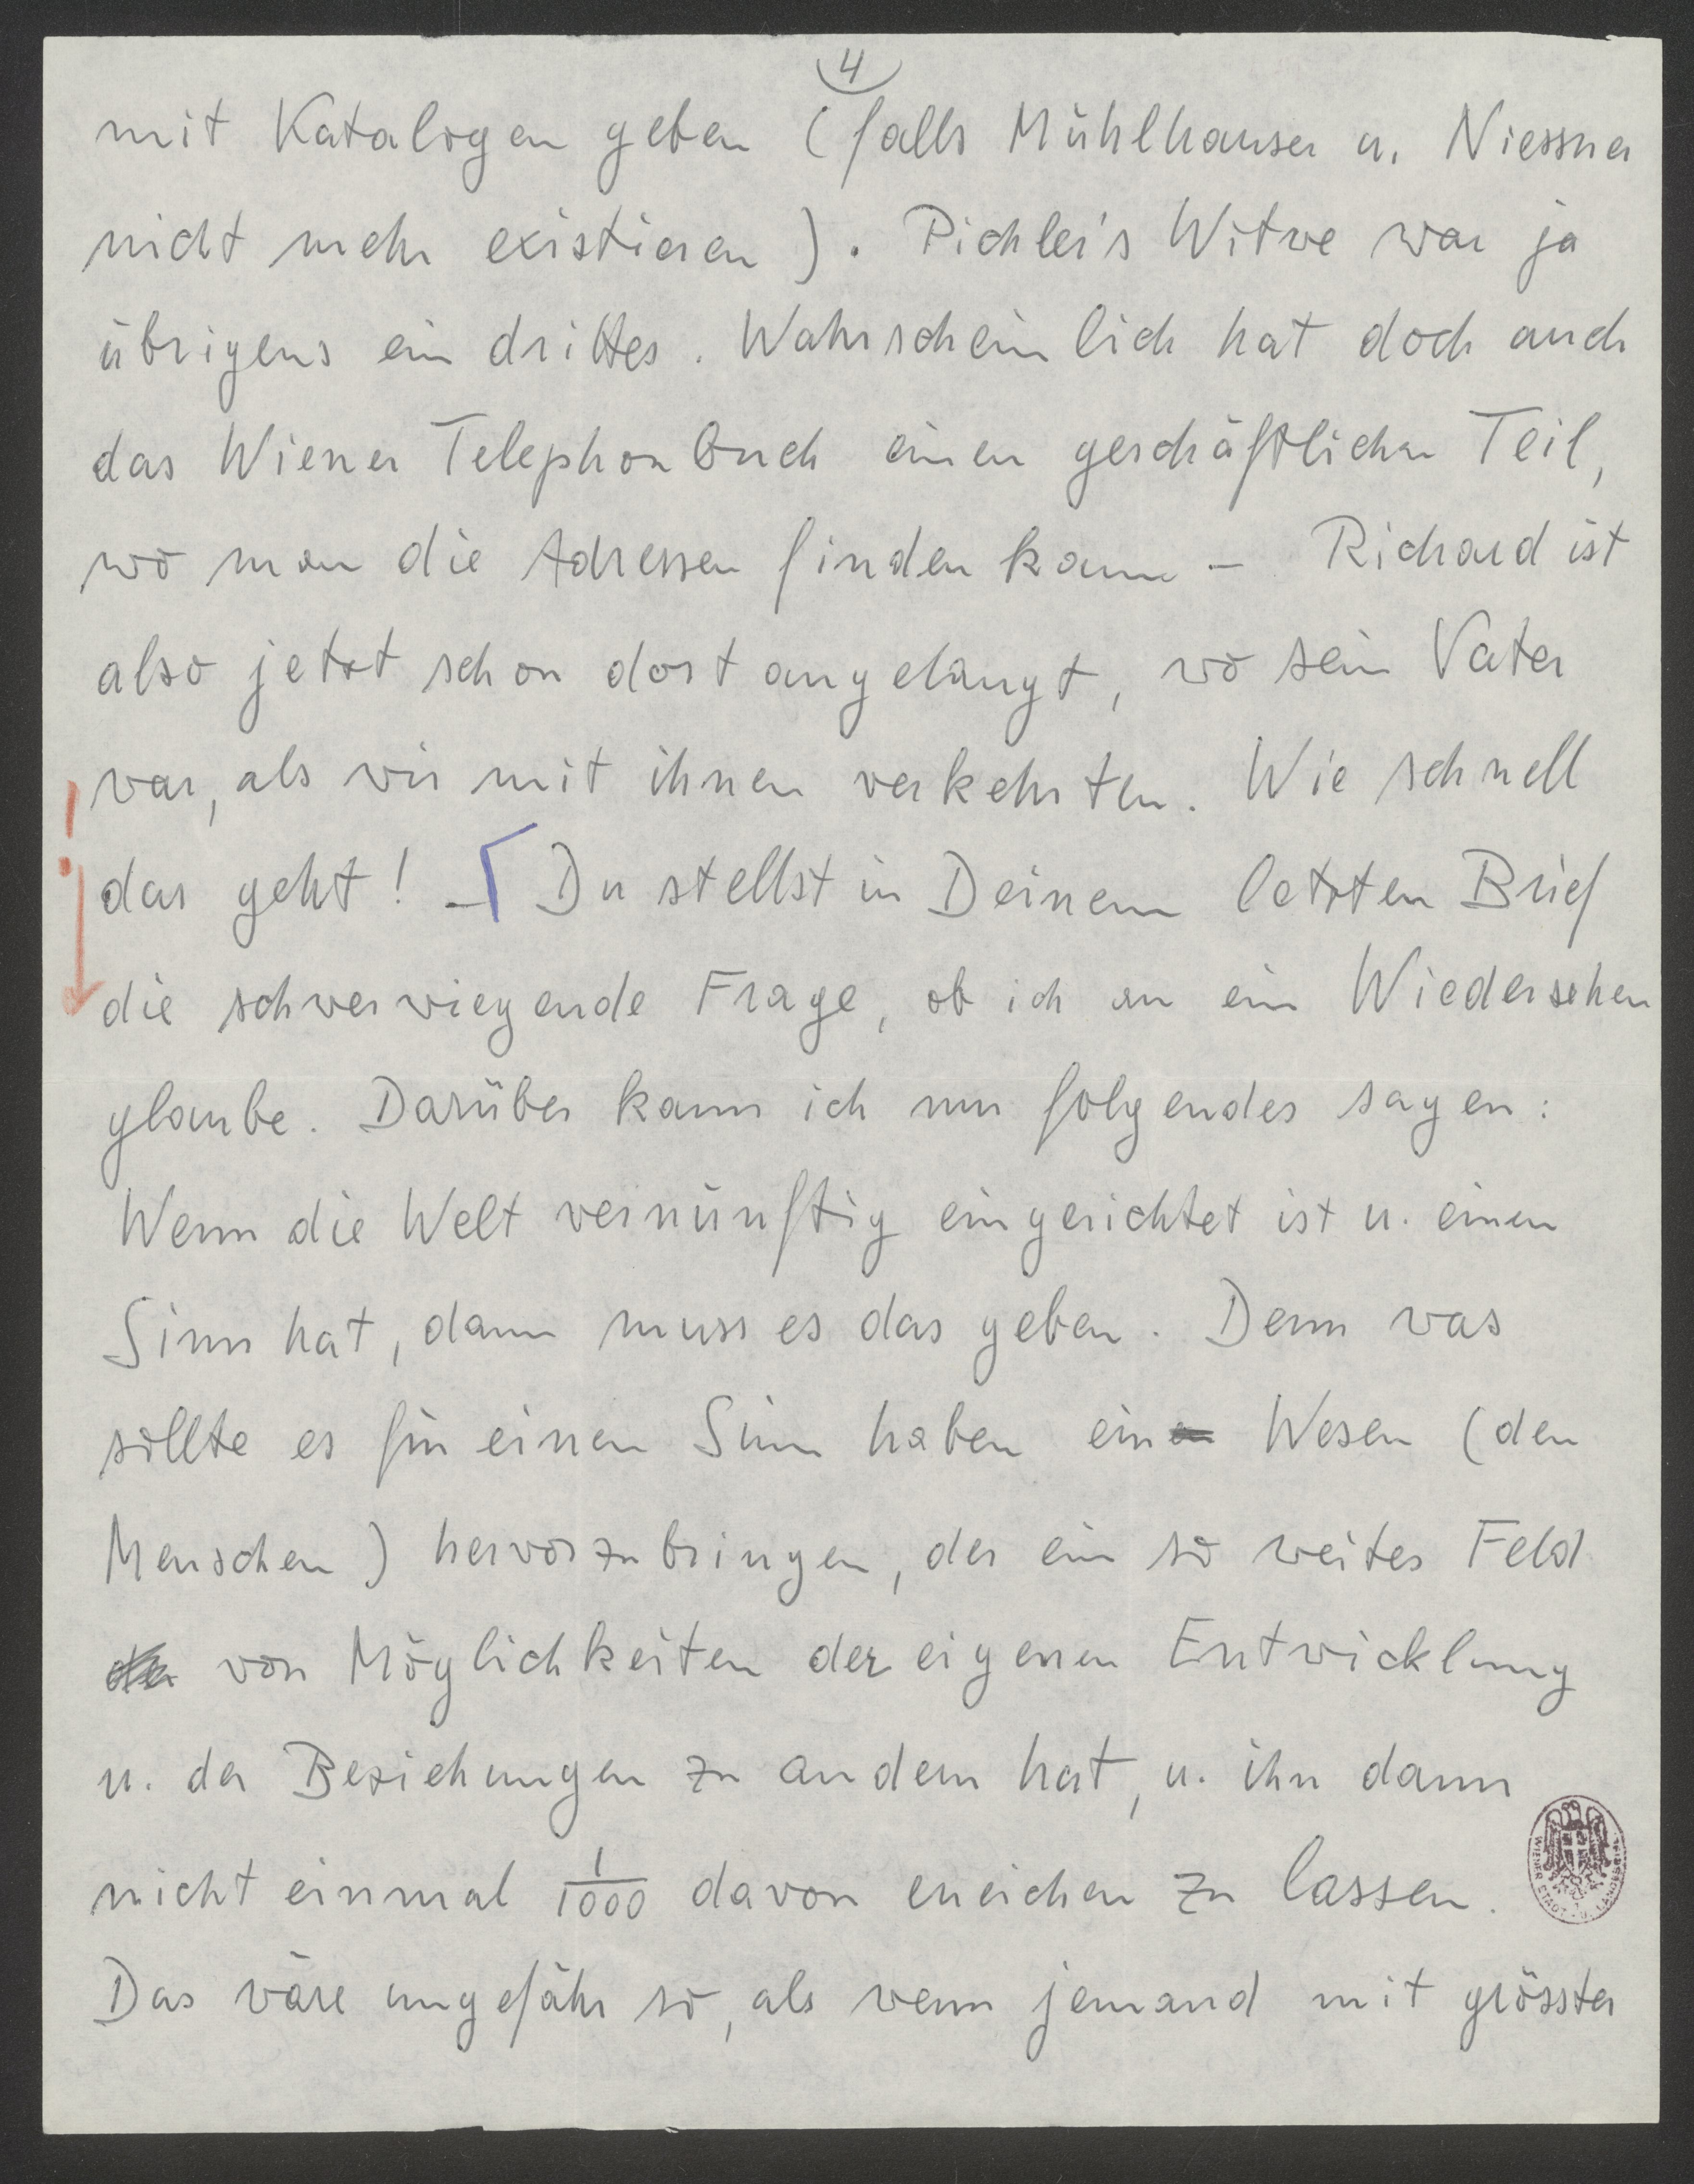 4
mit Katalogen geben (falls Mühlhauser u. Niessner
nicht mehr existieren). Pichler's Witwe war ja
übrigens ein drittes. Wahrscheinlich hat doch auch
das Wiener Telephonbuch einen geschäftlichen Teil,
wo man die Adressen finden kann – Richard ist
also jetzt schon dort angelangt, wo sein Vater
war, als wir mit ihnen verkehrten. Wie schnell
das geht! – Du stellst in Deinem letzten Brief
die schwerwiegende Frage, ob ich an ein Wiedersehen
glaube. Darüber kann ich nur folgendes sagen:
Wenn die Welt vernünftig eingerichtet ist u. einen
Sinn hat, dann muss es das geben. Denn was
sollte es für einen Sinn haben ein Wesen (den
Menschen) hervorzubringen, der ein so weites Feld
von Möglichkeiten der eigenen Entwicklung
u. der Beziehungen zu andern hat, u. ihn dann
nicht einmal 1/1000 davon erreichen zu lassen.
Das wäre ungefähr so, als wenn jemand mit grösster